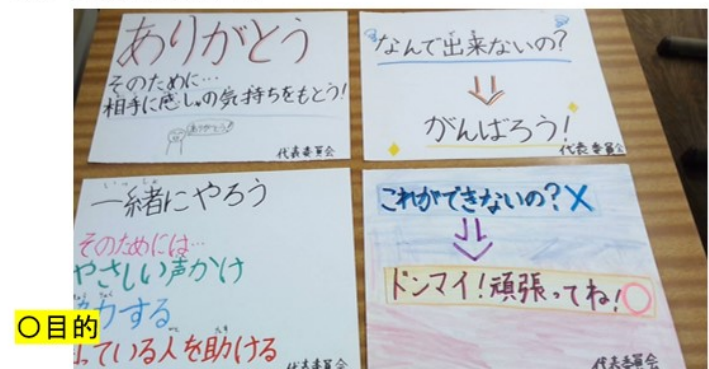 ありがとう
そのために…
相手に感しゃの気持ちをもとう!
ありがとう!
代表委員会
なんで出来ないの?
がんばろう!
代表委員会
いっしょ
一緒にやろう
そのためには…
やさしい声かけ
力する
っている人を助ける
代表委員会
これができないの?×
ドンマイ!頑張ってね!○
代表委員会
○目的